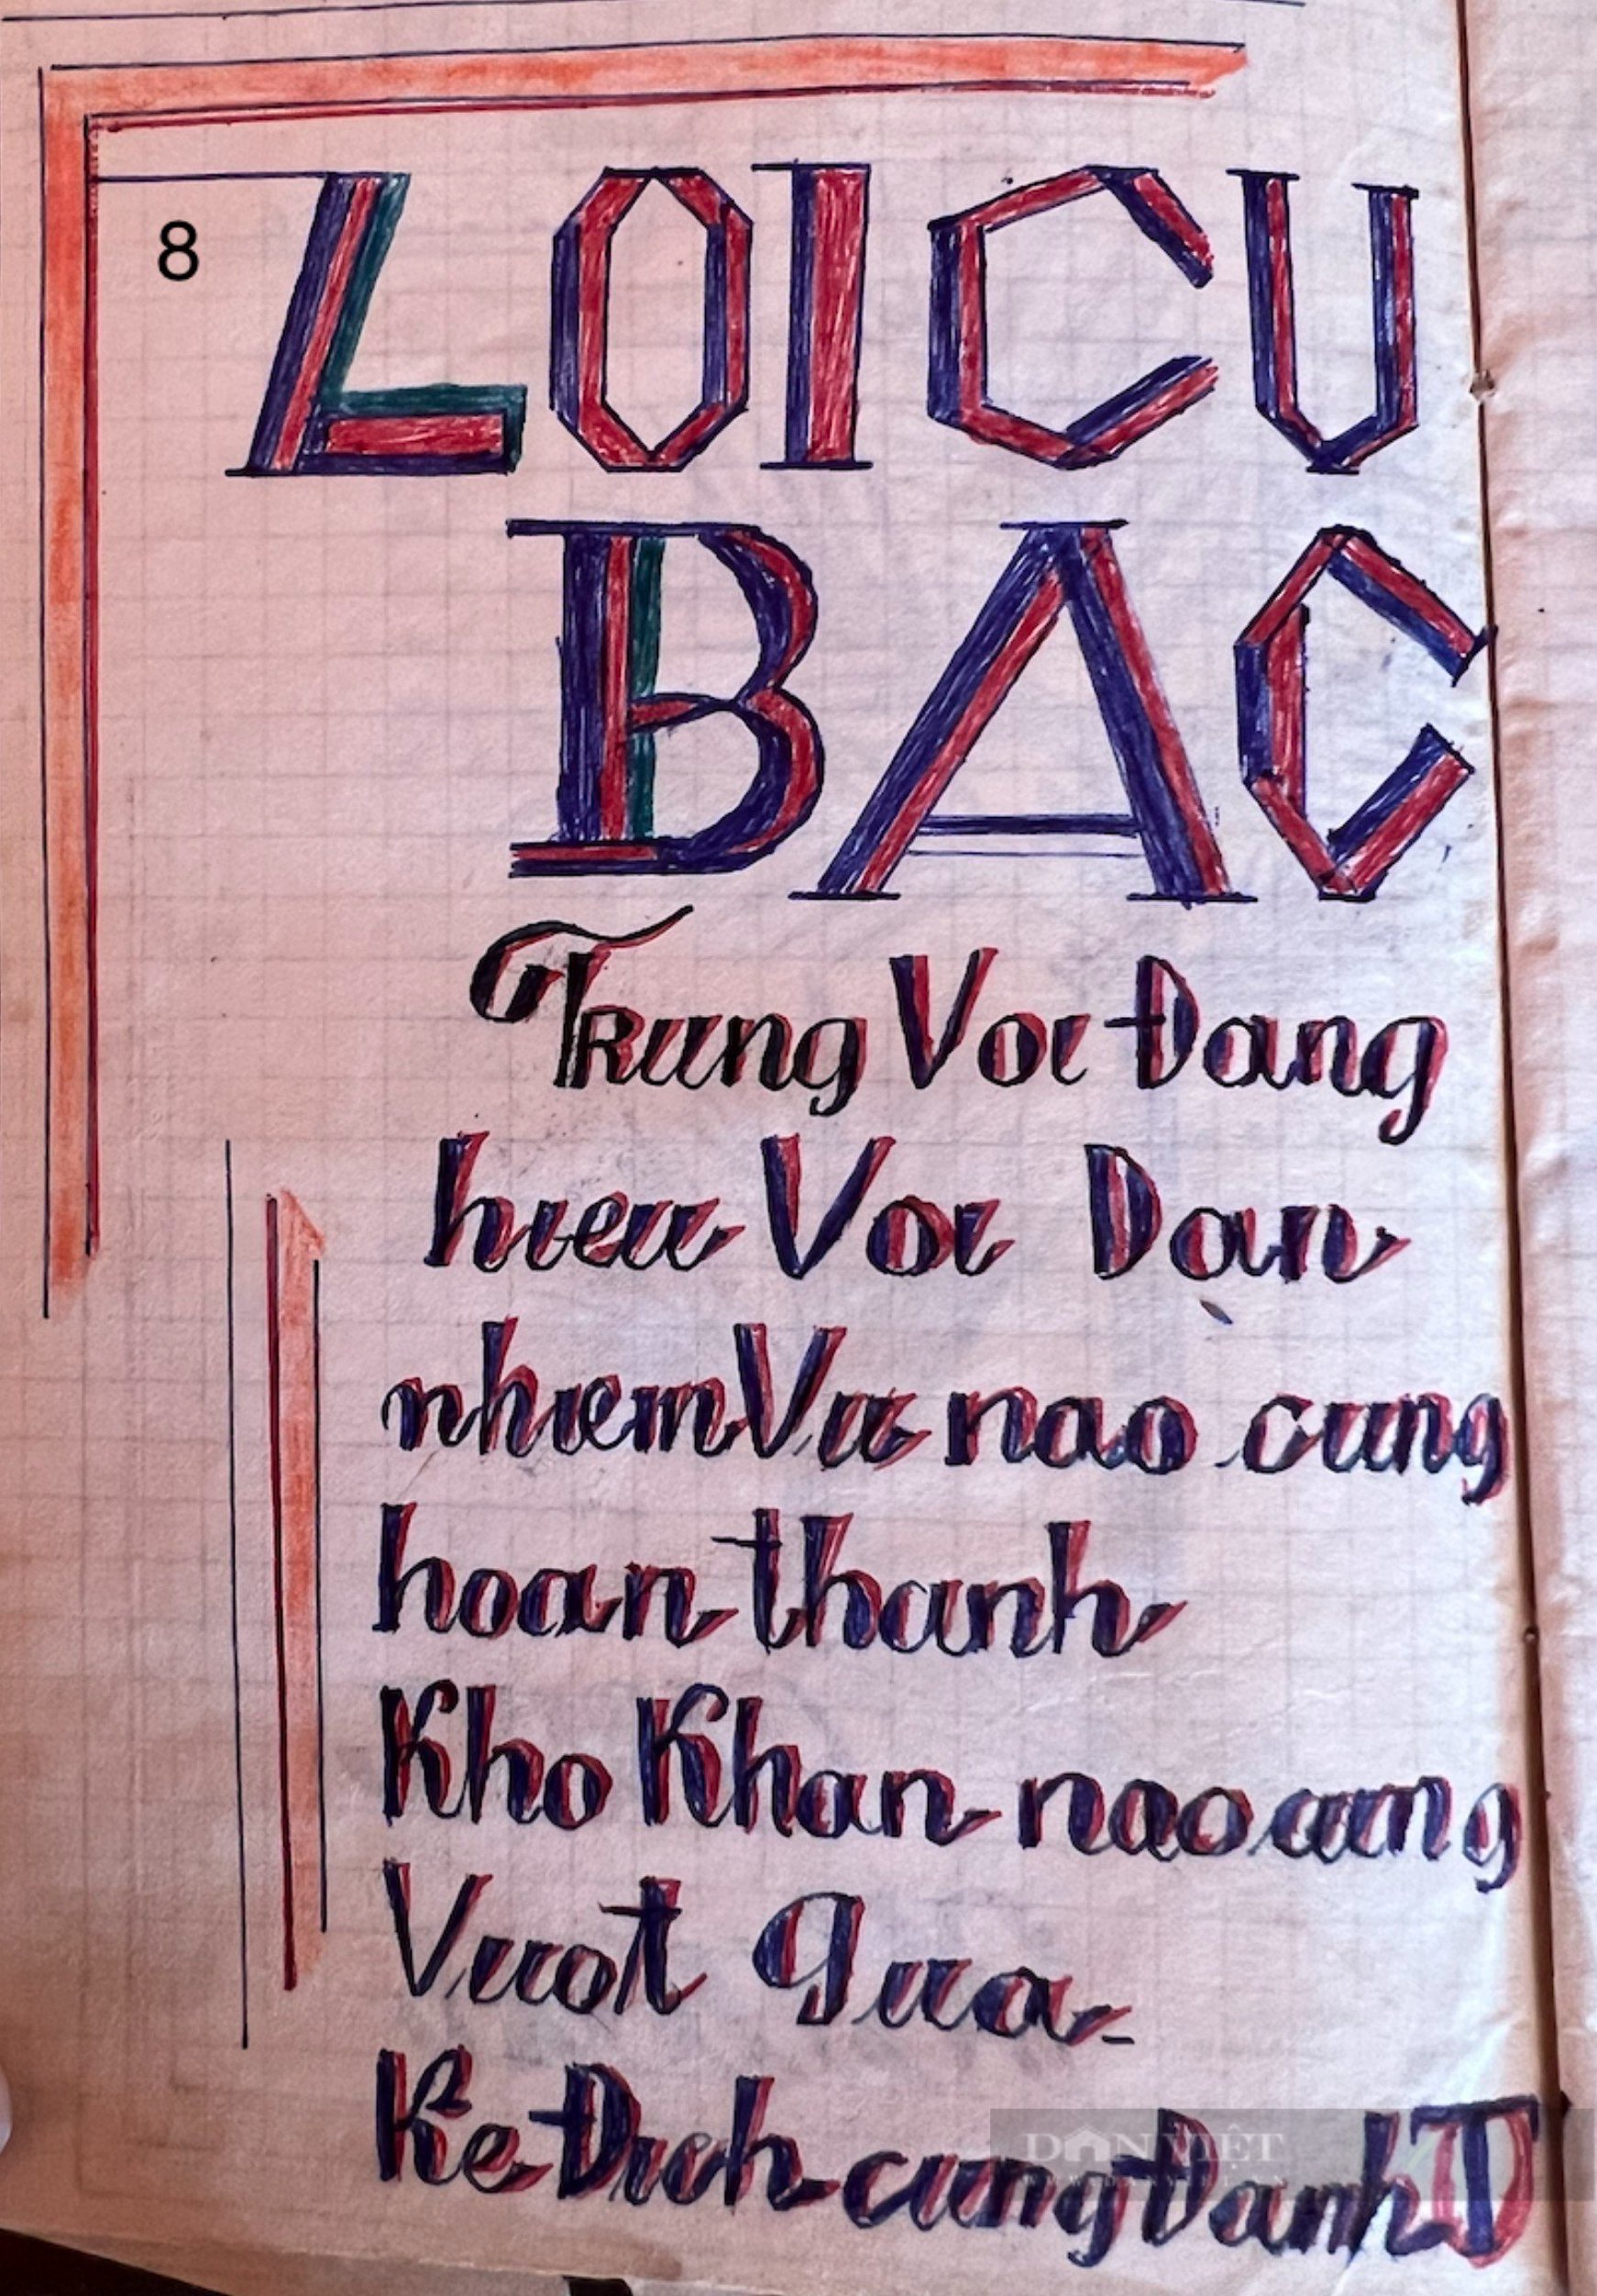 8
LOI CU
BAC
Trung Voi Đang
hieu Voi Dan
nhiem Vu nao cung
hoan thanh
Kho Khan nao cung
Vuot qua
Ke Đich cung Đanh T
DÂN VIỆT